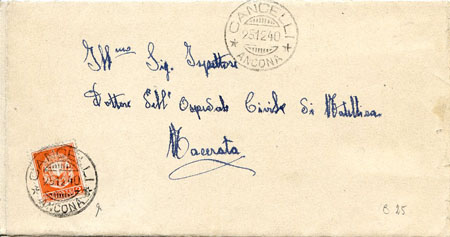 CANCELLI
25.12.40
* ANCONA *
Ill.mo Sig. Ispettore
Dottore dell' Ospedale Civile di Matelica
Macerata
CANCELLI
25.12.40
* ANCONA *